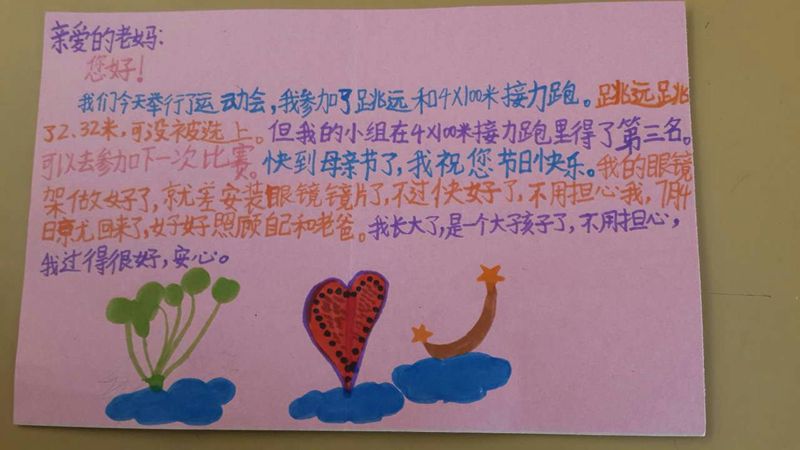 亲爱的老妈:
您好!
我们今天举行了运动会,我参加了跳远和4X100米接力跑。跳远跳
了2.32米,可没被选上。但我的小组在4X100米接力跑里得了第三名。
可以去参加下一次比赛。快到母亲节了,我祝您节日快乐。我的眼镜
架做好了,就差安装眼镜镜片了,不过快好了,不用担心我,7月4
日就回来了,好好照顾自己和老爸。我长大了,是一个大子孩子了,不用担心,
我过得很好,安心。